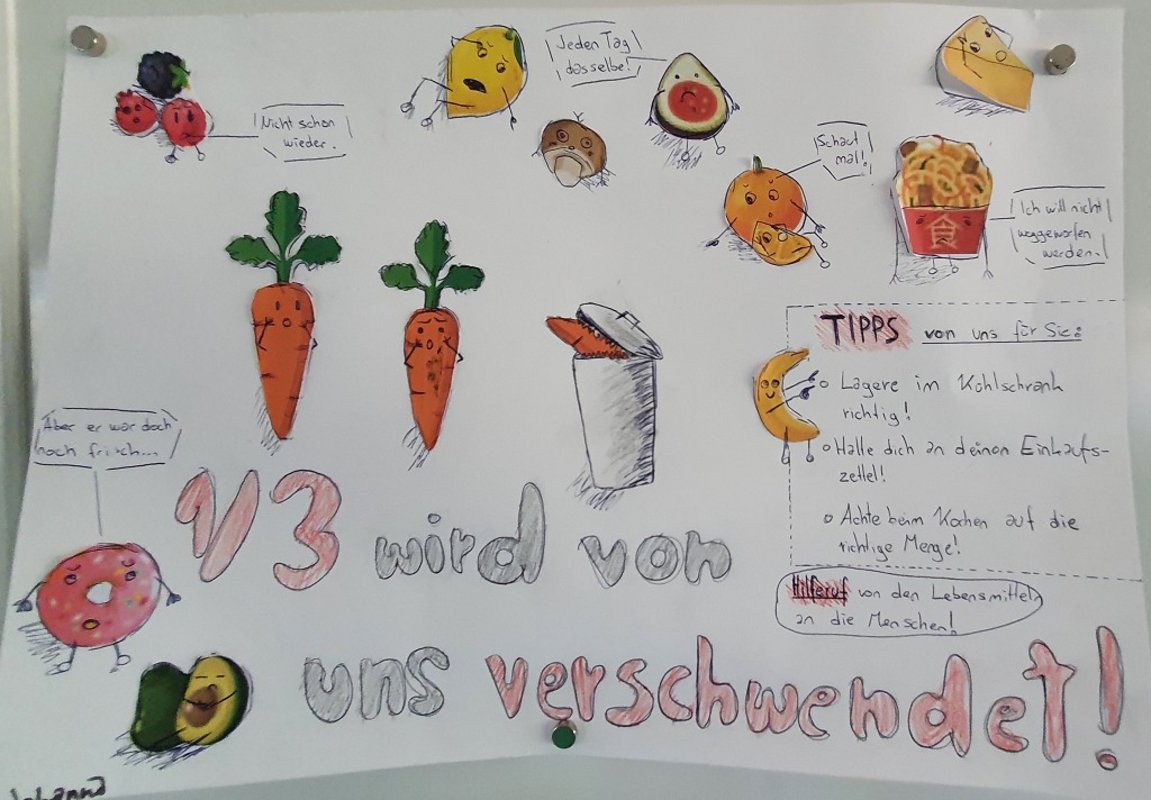 Jeden Tag
dasselbe!
Nicht schon
wieder.
Schaut
mal!
Ich will nicht
weggeworfen
werden.
食
TIPPS von uns für Sie:
Lagere im Kühlschrank
richtig!
Halte dich an deinen Einkaufs-
zettel!
Achte beim Kochen auf die
richtige Menge!
Hilferuf von den Lebensmitteln
an die Menschen!
Aber er war doch
noch frisch...
1/3 wird von
uns verschwendet!
Johanna